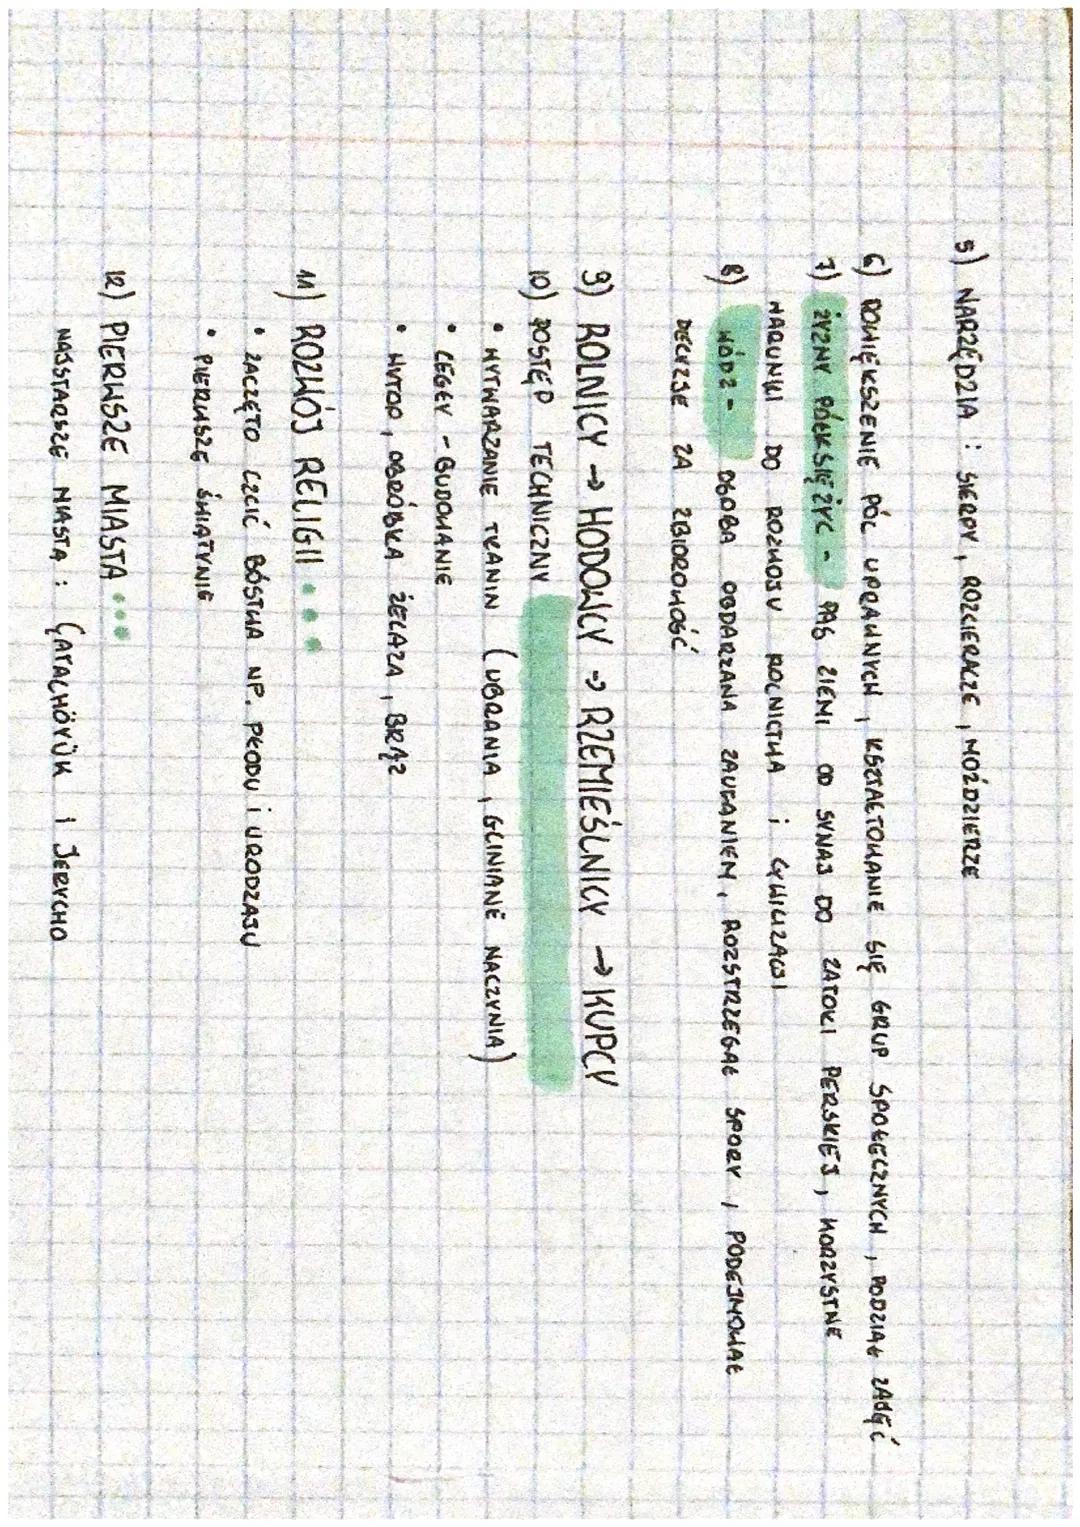 5) NARZĘDZIA : SIERPY, ROZCIERACZE, MOŹDZIERZE
6) POWIĘKSZENIE PÓL UPRAWNYCH, KSZTAŁTOWANIE SIĘ GRUP SPOŁECZNYCH, PODZIAŁ ZAJĘĆ
7) ŻYZNY PÓŁKSIĘŻYC - PAS ZIEMI OD SYNAJ DO ZATOKI PERSKIEJ, KORZYSTNE
WARUNKI DO ROZWOJU ROLNICTWA i CYWILIZACJI
8) WÓDZ - OSOBA OBDARZANA ZAUFANIEM, ROZSTRZEGAŁ SPORY, PODEJMOWAŁ
DECYZJE ZA ZBIOROWOŚĆ
9) ROLNICY → HODOWCY → RZEMIEŚLNICY → KUPCY
10) POSTĘP TECHNICZNY
• WYTWARZANIE TKANIN (UBRANIA, GLINIANE NACZYNIA)
• CEGŁY - BUDOWANIE
• WYTOP, OBRÓBKA ŻELAZA, BRĄZ
11) ROZWÓJ RELIGII
• ZACZĘTO CZCIĆ BÓSTWA NP. PŁODU i URODZAJU
• PIERWSZE ŚWIĄTYNIE
12) PIERWSZE MIASTA
NAJSTARSZE MIASTA : ÇATALHÖYÜK I JERYCHO